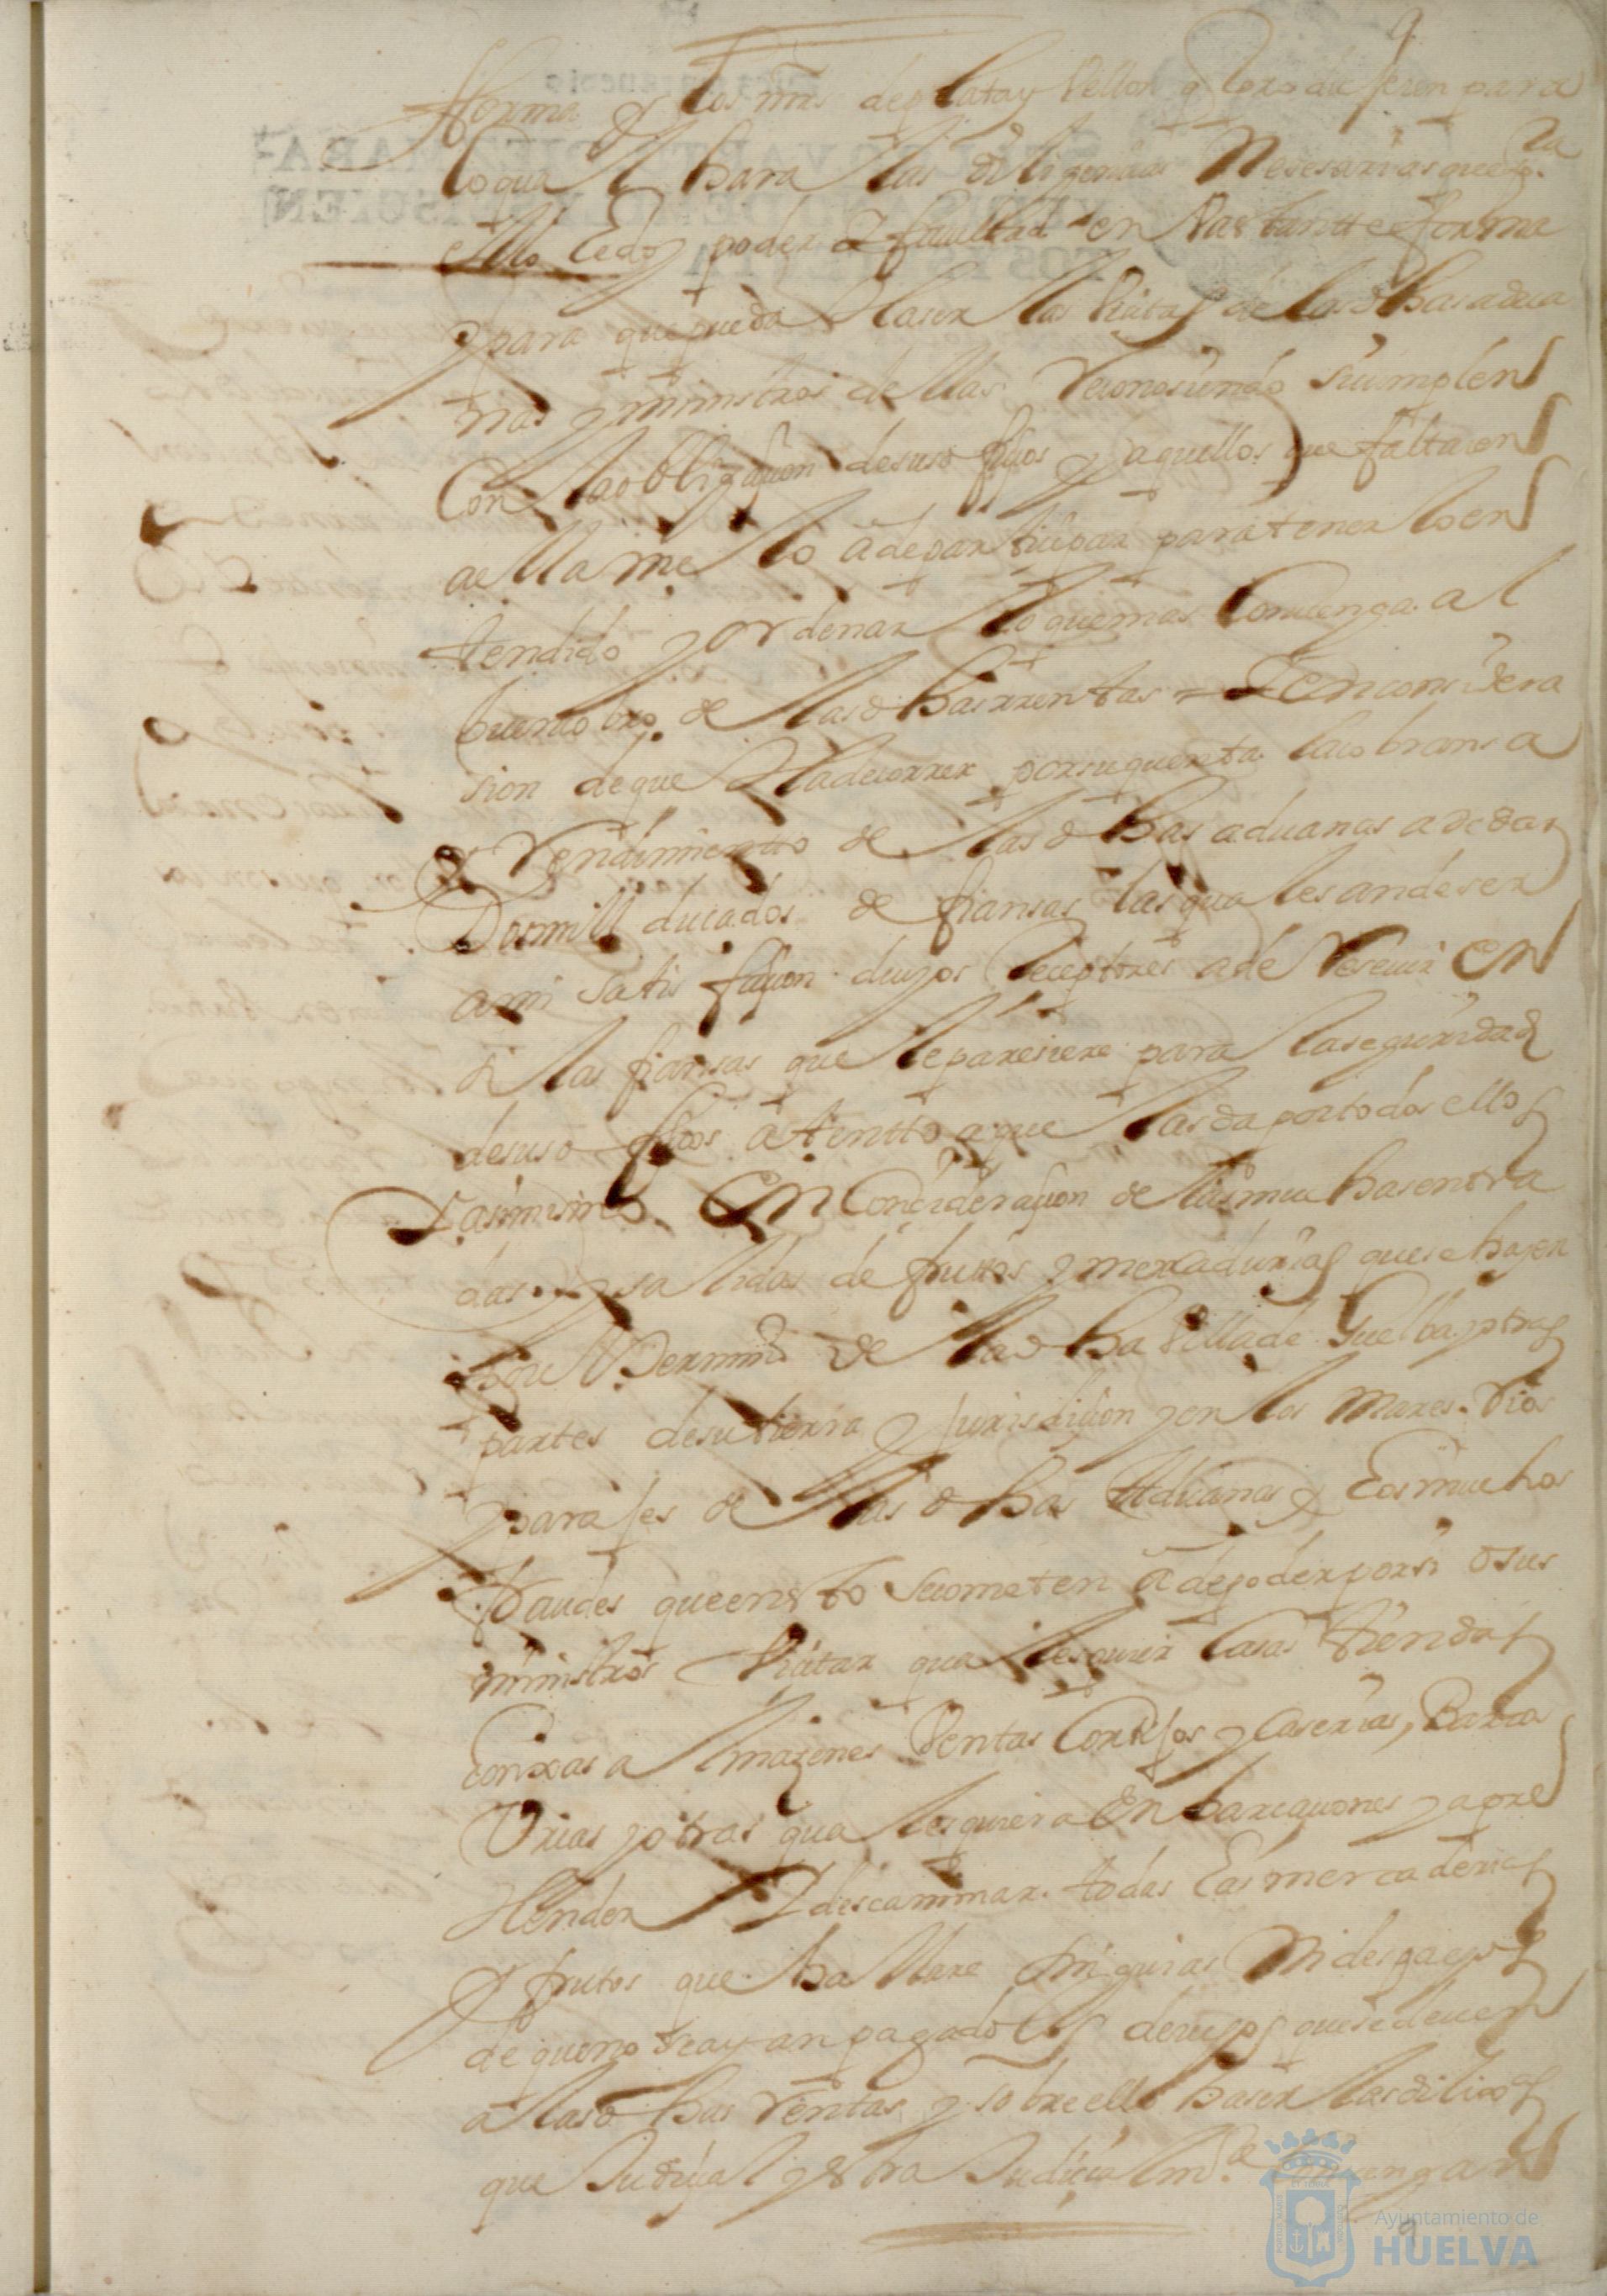 9
forma y los mrs de plata y Vellon q Proxodu seren para
lo qual hara las diligencias Nesesarias que pa.
ello le doy poder & facultad en Vastantte forma
y para que pueda haser las Vicitas de las dhas adua
nas y ministros de llas Reconosiendo si cumplen
Con la obligaçion de sus ofiçios y aquellos que faltaren
a ella me lo a de partisipar para tener lo en
tendido y ordenar lo que mas Convenga al
buen cobro de las dhas rrentas = Y en considera
sion de que Ha de correr por su quenta la cobransa
y Rendimientto de las dhas aduanas a de dar
Dos mill ducados de fiansas las quales an de ser
a mi satisfaçion cuyos Receptores a de Reseuir en
si las fiansas que le paresiere para la seguridad
de sus ofiçios atentto a que las da por todos ellos
Y asimismo En Conçideraçion de las muchas entra
das y salidas de fruttos y mercadurias que se hasen
por el termino de la dha Villa de Guelba y otras
partes de su tierra y jurisdiçion y en los Mares. Rios
y parajes de las dhas Aduanas y Los muchos
fraudes que en esto se cometen a de poder por si o sus
ministros Vicitar quales quier casas tiendas
Lonxas almazenes Ventas Cortijos y Caserias, Barca
Vrias y otras quales quiera Enbarcaçiones y apre
Hender Y descaminar todas Las mercaderias
y frutos que hallare sin guias Ni despachos
de que no se ayan pagado los derechos que se deuen
a las dhas Rentas y sobre ello haser las diligas
que Judiçial y estra Judiçialmte Convengan
9
Ayuntamiento de
HUELVA